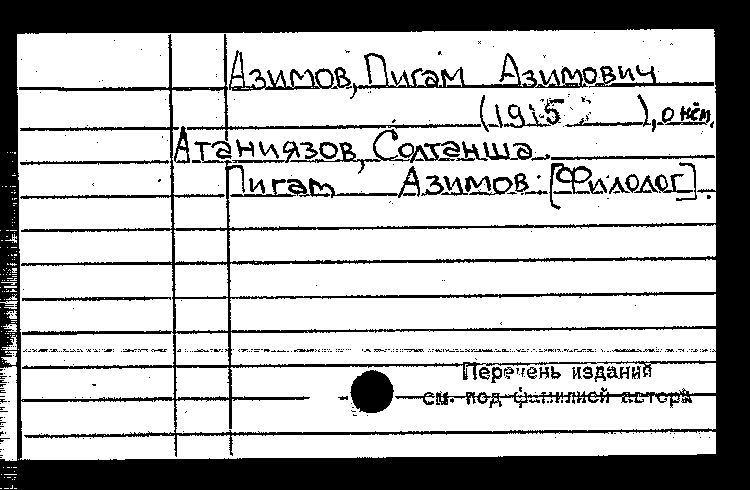 Азимов, Пигам Азимович
(1915 ), о нём.
Атаниязов, Солтанша.
Пигам Азимов: [Филолог].
Перечень изданий
см. под фамилией автора